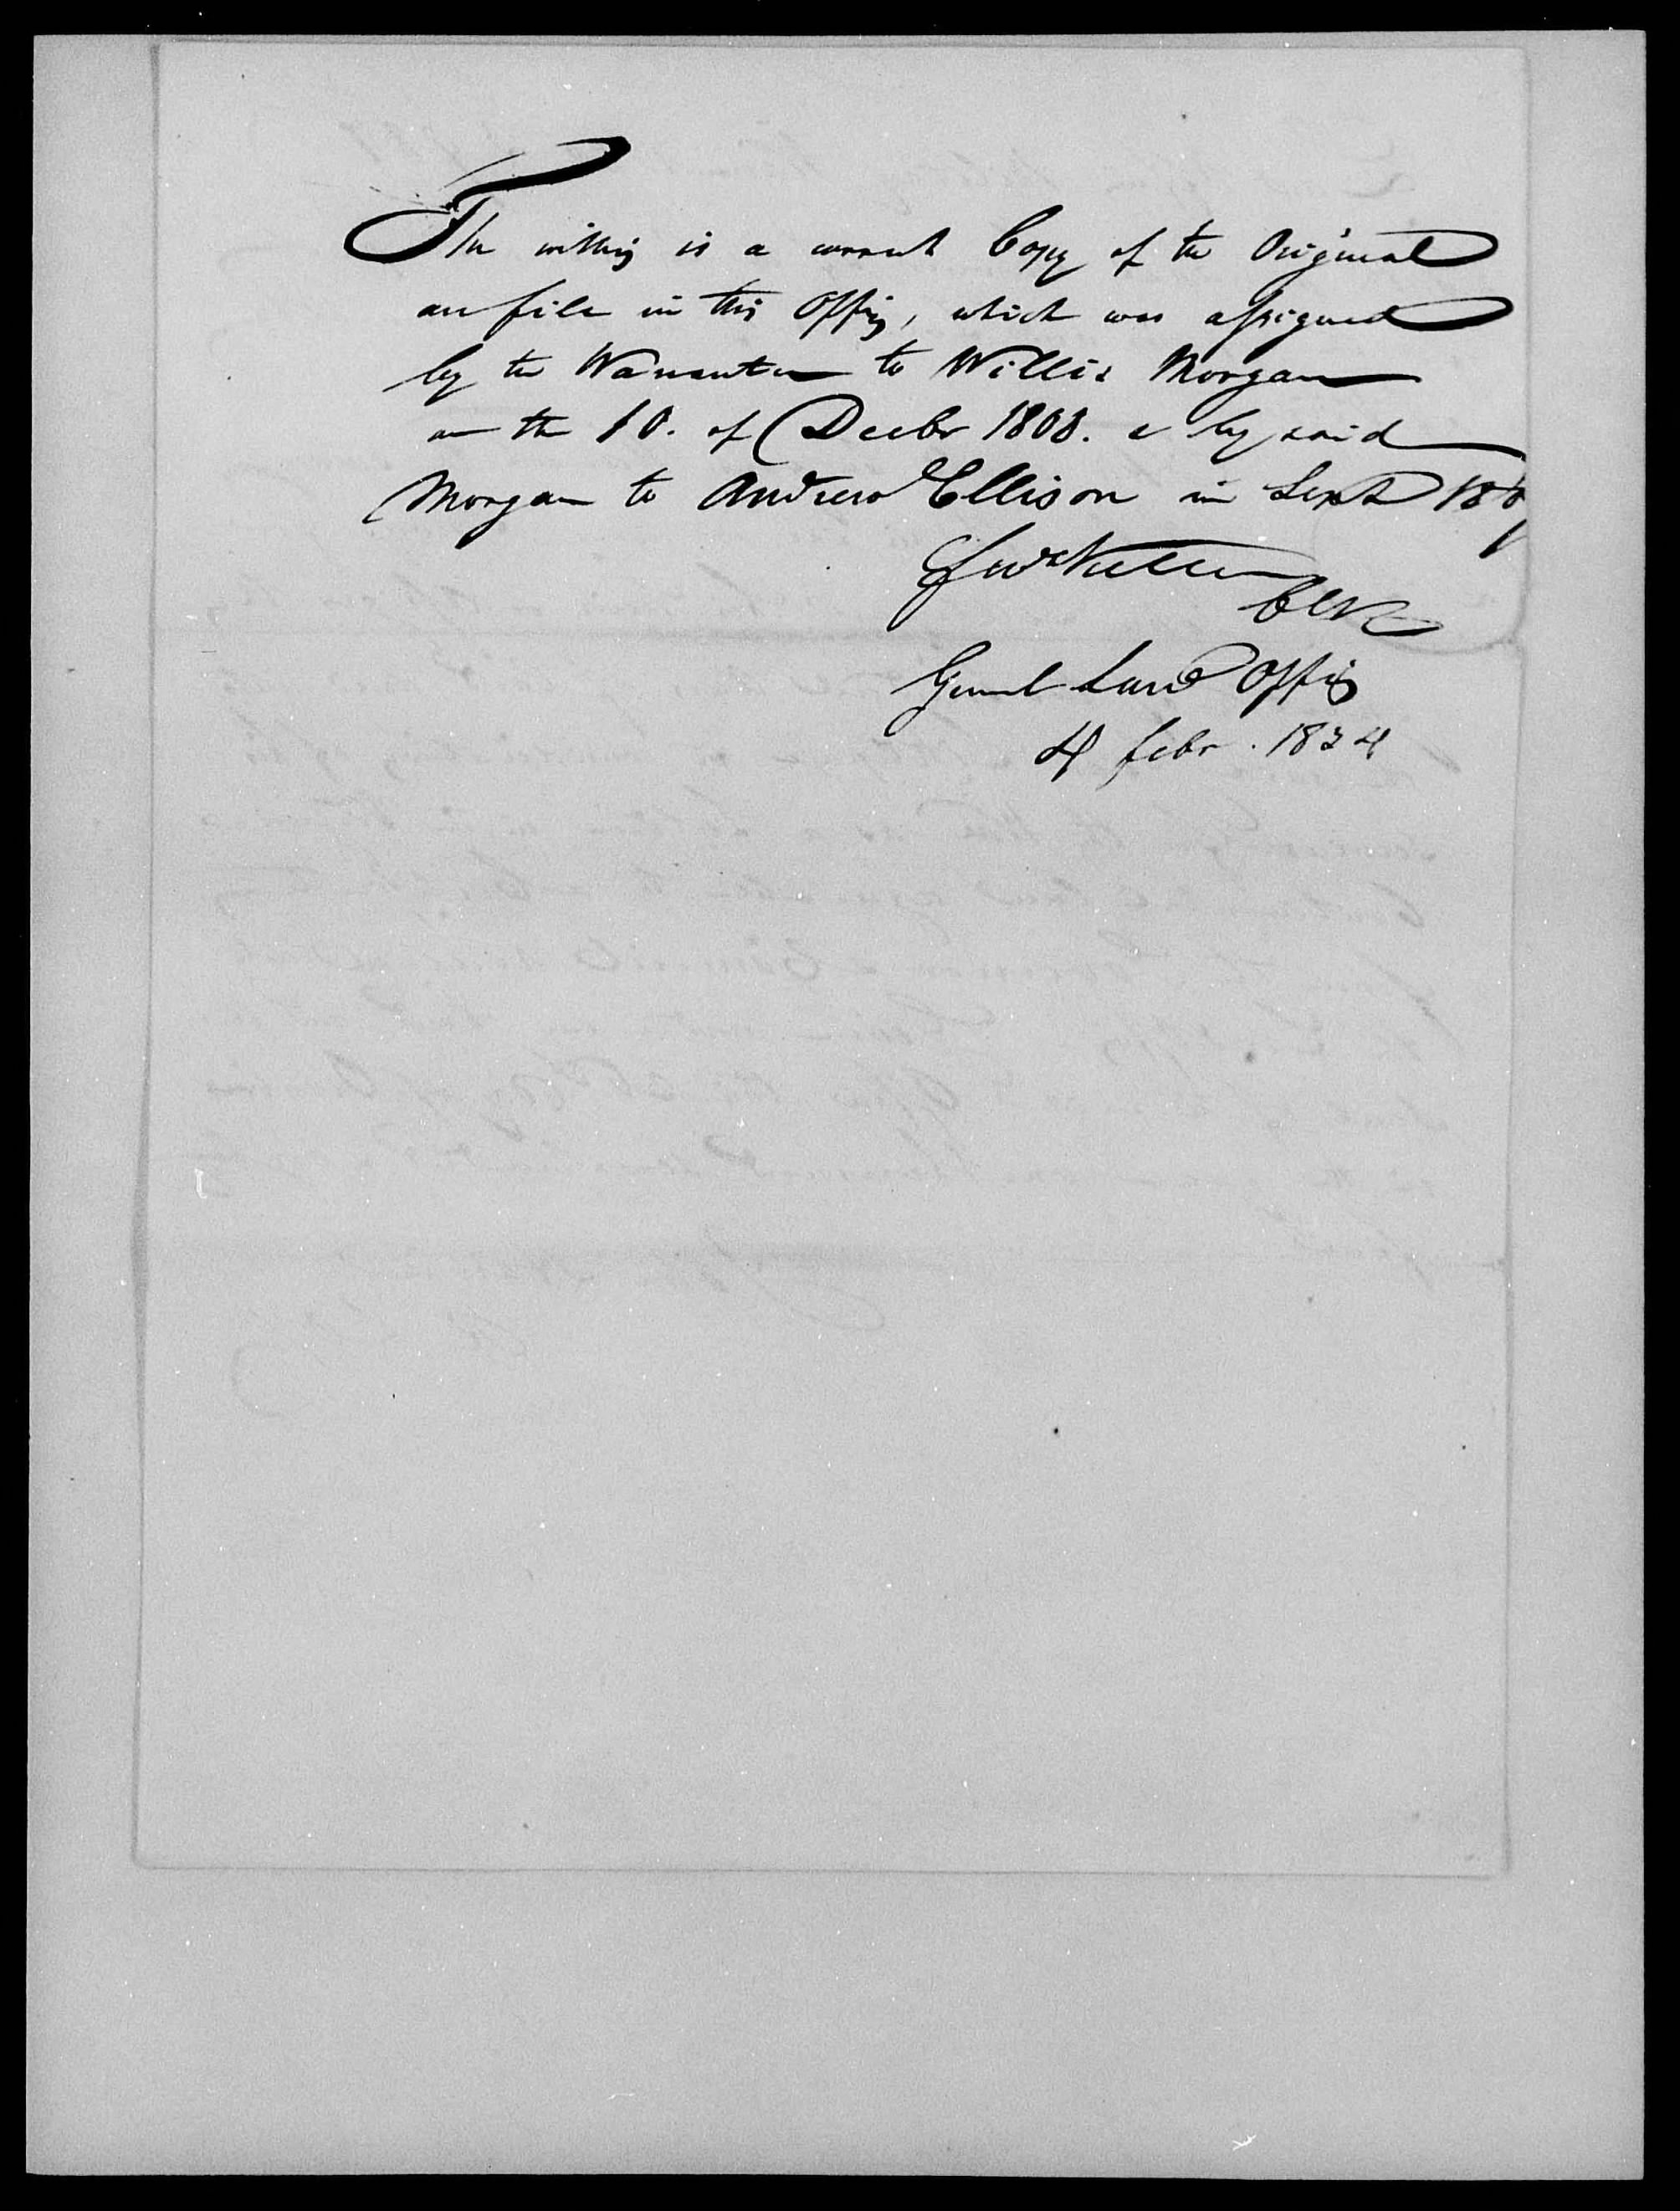 The within is a correct Copy of the Original
on file in this Office, which was assigned
by the Warrantee to Willis Morgan
on the 10. of Decbr 1808. & by said
Morgan to Andrew Ellison in Sept 1809
Clk
Genrl Land Office
4 febr. 1834